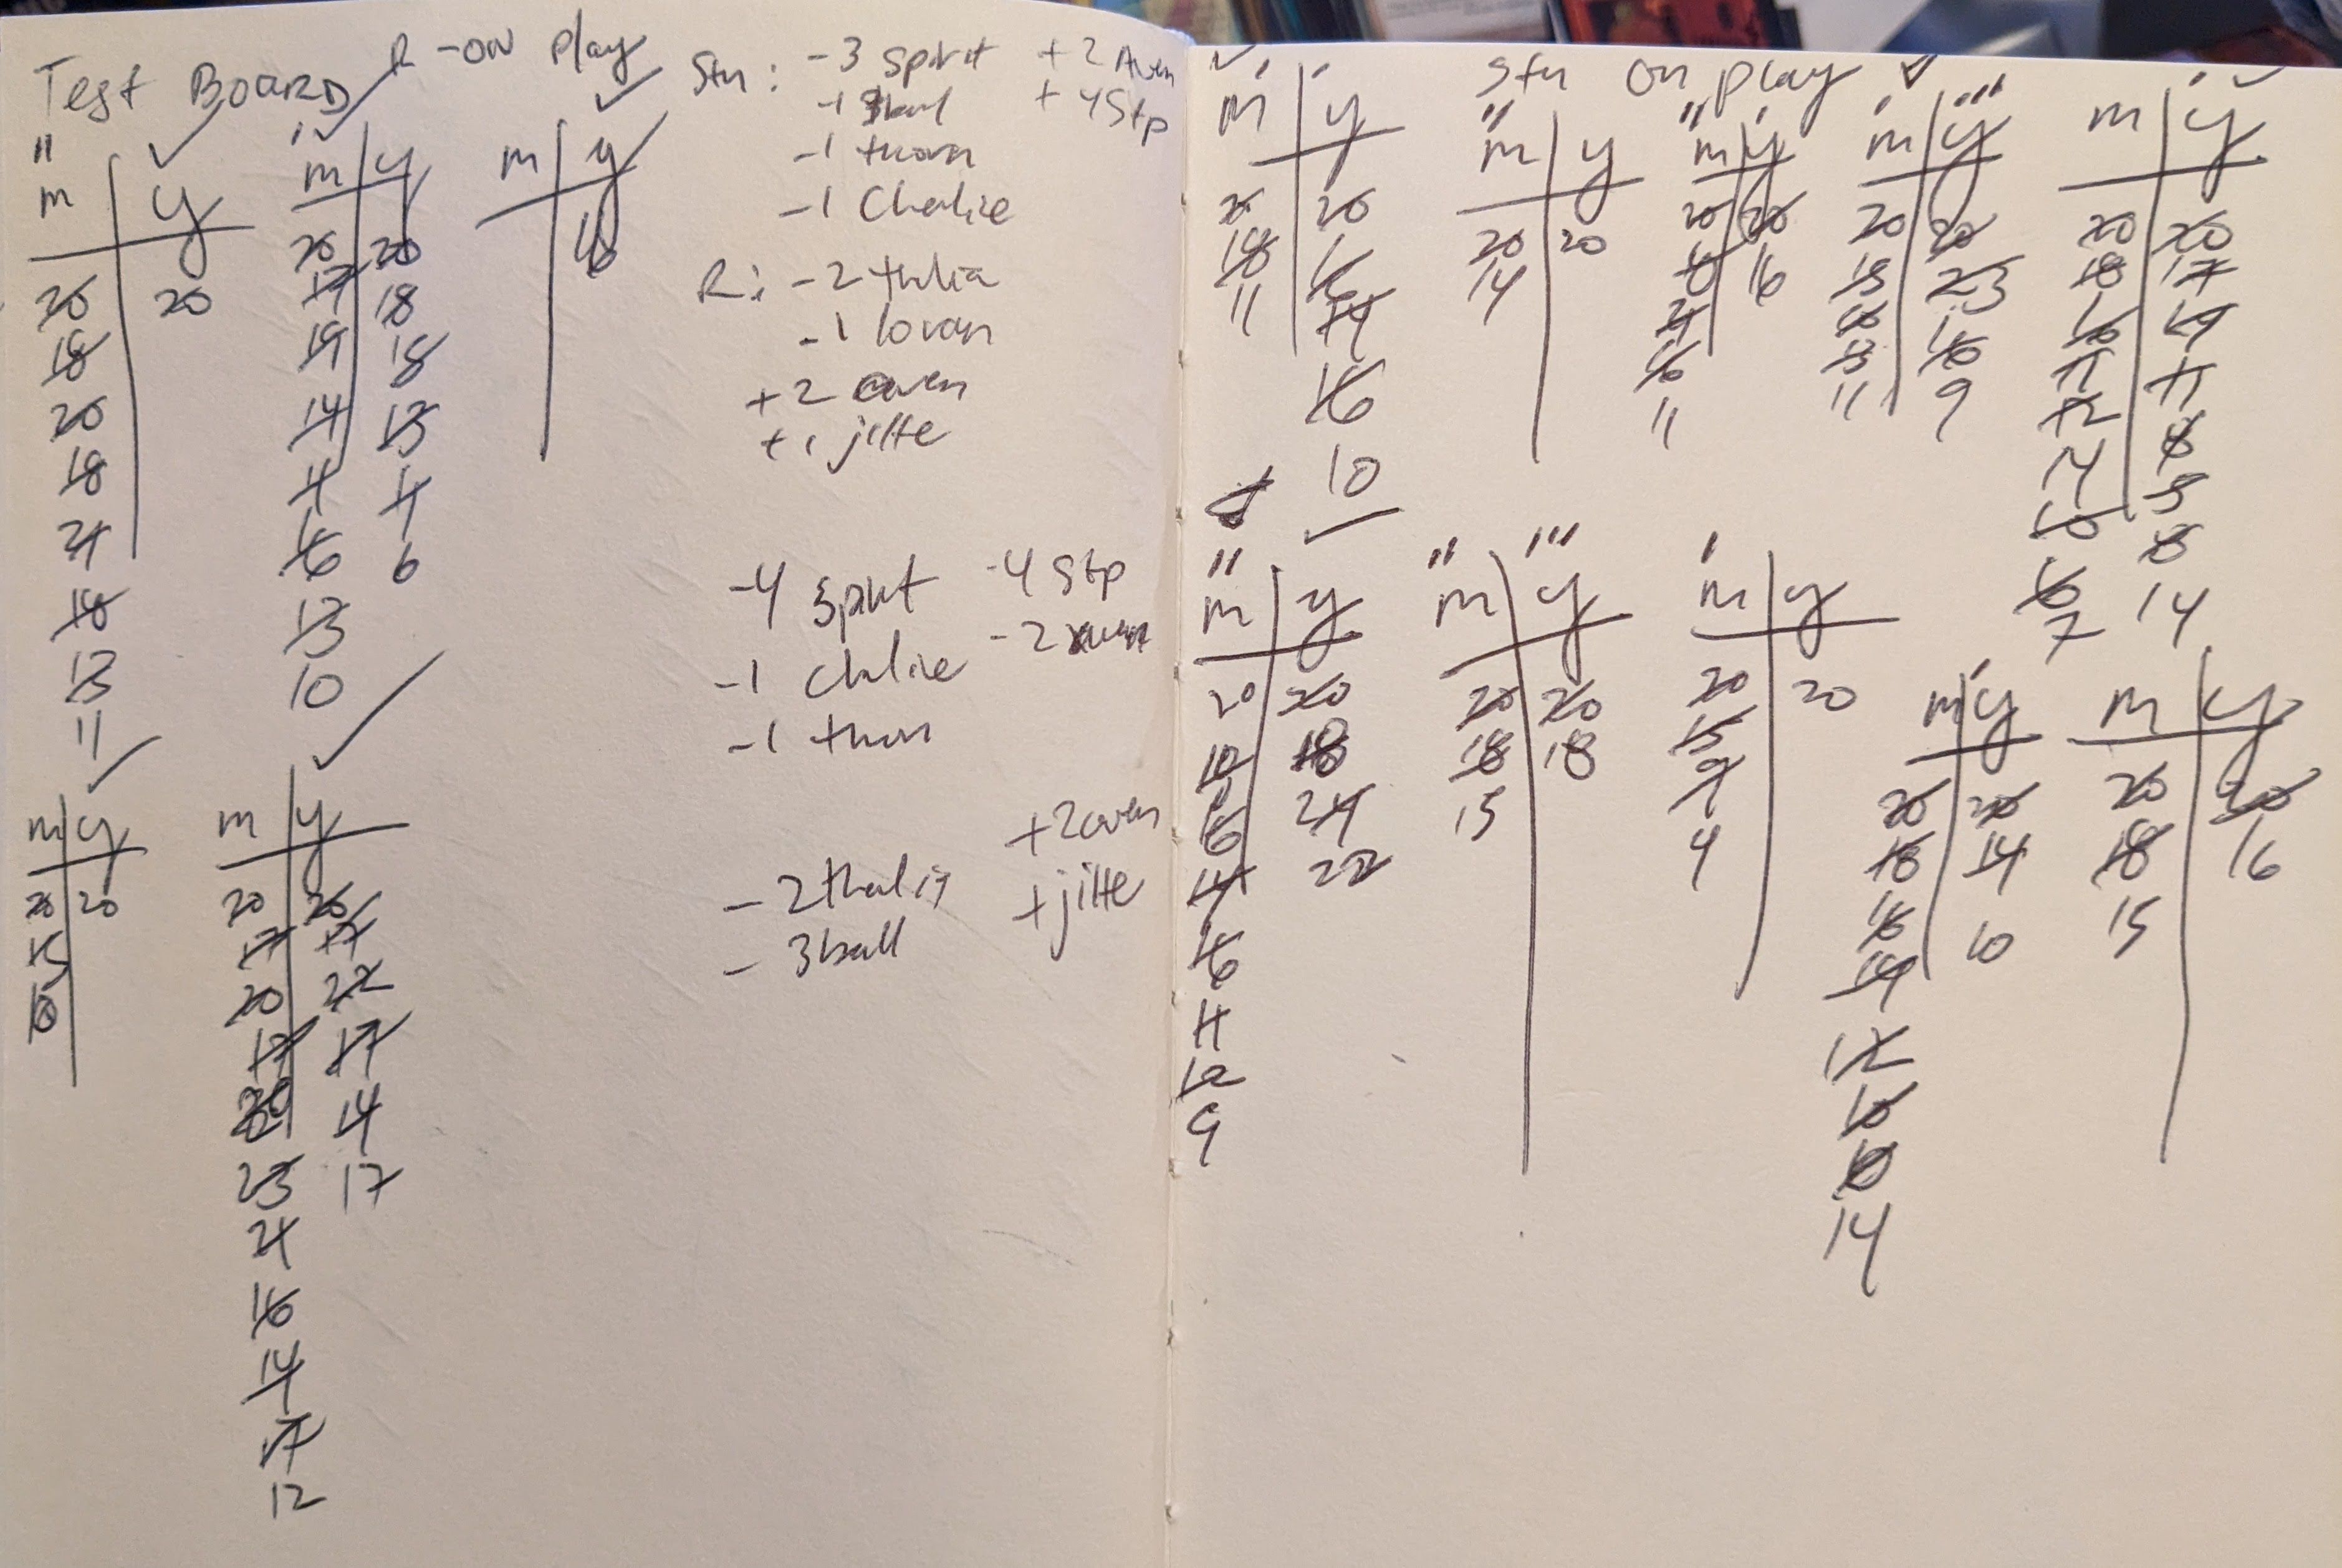 Test Board
R -on play
m | y
20 20
18
20
18
21
18
13
11
m | y
20 20
17 18
19 18
14 13
11 11
16 6
13
10
m | y
16
m | y
20 20
15
10
m | y
20 20
17 17
20 22
17 17
14
23 17
21
16
14
17
12
Stn: -3 spirit +2 Aven
-1 +4 Stp
-1 thorn
-1 Chalice
R: -2 thalia
-1 loran
+2 aven
+1 jitte
-4 Spirit -4 Stp
-1 chalice -2 aven
-1 thorn
+2 aven
-2 thalia +jitte
-3 ball
m | y
20 20
18 16
11 14
16
10
Stn on play
m | y
20 20
14
m | y
20 20
16
16
11
m | y
20 20
15 23
16 16
13 9
11
m | y
20 20
18 17
16 14
11
12 8
14 5
10 8
6 14
7
m | y
20 20
12 18
16 24
14 22
16
11
12
9
m | y
20 20
18 18
15
m | y
20 20
15
9
4
m | y
20 20
18 14
16 10
14
12
10
14
m | y
20 20
18 16
15